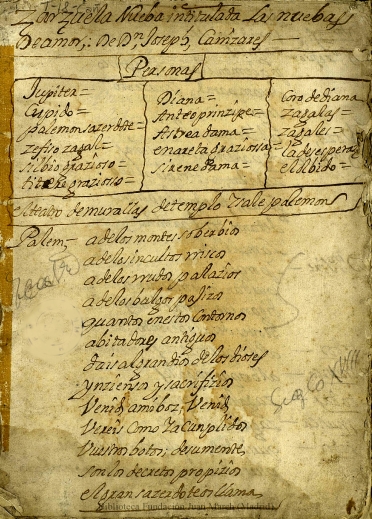 Zarzuela Nueba intitulada Las nuebas
De amor,: De Dn Joseph, Cañizares
Personas
Jupiter=
Cupido=
palemon sazerdote=
zefiro zagal=
silbio grazioso=
titiro grazioso=
Diana=
Anteo prinzipe=
Astrea dama=
enareta graziosa
sirene dama=
Coro de diana
zagalas
zagales=
la desesperaz
el olbido=
el teatro de murallas de templo i sale palemon
Palem,- a de los montes soberbios
a de los incultos rriscos
a de los rrudos pallazios
a de los
quantos en estos Contornos
abitadores antiguos
dais al grandios de los dioses
ynzienso y sacrifizio
Venid, a mi boz, Venid,
Vereis Como ya Cunplidos
Vuestros botos;
son los decretos propizios
el gran sazerdote os llama
Teatro
Siglo XVIII
Biblioteca Fundación Juan March (Madrid)